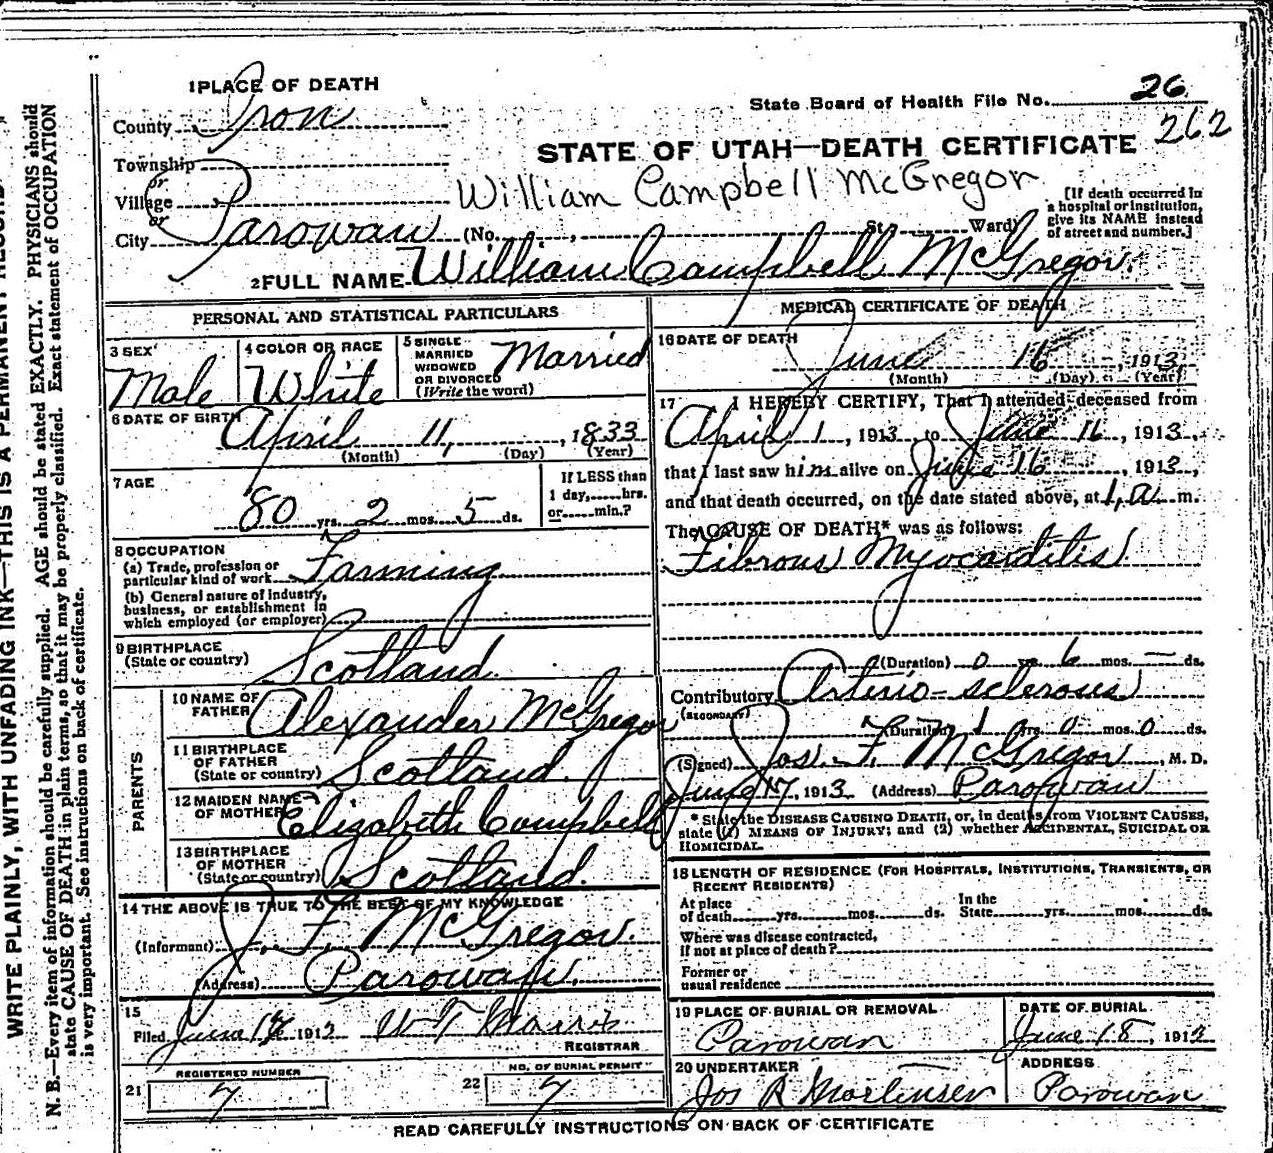 1 PLACE OF DEATH
County Iron
Township
or
Village
or
City Parowan (No. , St., Ward)
State Board of Health File No. 26
262
STATE OF UTAH—DEATH CERTIFICATE
William Campbell McGregor
[If death occurred in
a hospital or institution,
give its NAME instead
of street and number.]
2 FULL NAME William Campbell McGregor.
PERSONAL AND STATISTICAL PARTICULARS
3 SEX
Male
4 COLOR OR RACE
White
5 SINGLE
MARRIED
WIDOWED
OR DIVORCED
(Write the word)
Married
6 DATE OF BIRTH
April 11, , 1833
(Month) (Day) (Year)
7 AGE
80 yrs. 2 mos. 5 ds.
If LESS than
1 day,......hrs.
or......min.?
8 OCCUPATION
(a) Trade, profession or
particular kind of work Farming
(b) General nature of industry,
business, or establishment in
which employed (or employer)
9 BIRTHPLACE
(State or country) Scotland.
PARENTS
10 NAME OF
FATHER Alexander McGregor
11 BIRTHPLACE
OF FATHER
(State or country) Scotland.
12 MAIDEN NAME
OF MOTHER Elizabeth Campbell
13 BIRTHPLACE
OF MOTHER
(State or country) Scotland.
14 THE ABOVE IS TRUE TO THE BEST OF MY KNOWLEDGE
(Informant) J. F. McGregor.
(Address) Parowan.
15
Filed June 1913
REGISTRAR
REGISTERED NUMBER
21 7
NO. OF BURIAL PERMIT
22 7
MEDICAL CERTIFICATE OF DEATH
16 DATE OF DEATH
June 16 , 1913,
(Month) (Day) (Year)
17 I HEREBY CERTIFY, That I attended deceased from
April 1 , 1913 to June 16 , 1913,
that I last saw him alive on June 16 , 1913,
and that death occurred, on the date stated above, at 1, a m.
The CAUSE OF DEATH* was as follows:
Fibrous Myocarditis
(Duration) 0 yrs. 6 mos. — ds.
Contributory Arterio-sclerosis
(SECONDARY)
(Duration) 1 yrs. 0 mos. 0 ds.
(Signed) Jos. F. McGregor , M. D.
June 17, 1913 (Address) Parowan
* State the DISEASE CAUSING DEATH, or, in deaths from VIOLENT CAUSES,
state (1) MEANS OF INJURY; and (2) whether ACCIDENTAL, SUICIDAL OR
HOMICIDAL.
18 LENGTH OF RESIDENCE (FOR HOSPITALS, INSTITUTIONS, TRANSIENTS, OR
RECENT RESIDENTS)
At place In the
of death......yrs......mos......ds. State......yrs......mos......ds.
Where was disease contracted,
if not at place of death?
Former or
usual residence
19 PLACE OF BURIAL OR REMOVAL
Parowan
DATE OF BURIAL
June 18, 1913
20 UNDERTAKER
Jos R Mortensen
ADDRESS
Parowan
READ CAREFULLY INSTRUCTIONS ON BACK OF CERTIFICATE
WRITE PLAINLY, WITH UNFADING INK—THIS IS A PERMANENT RECORD.
N. B.—Every item of information should be carefully supplied. AGE should be stated EXACTLY. PHYSICIANS should
state CAUSE OF DEATH in plain terms, so that it may be properly classified. Exact statement of OCCUPATION
is very important. See instructions on back of certificate.